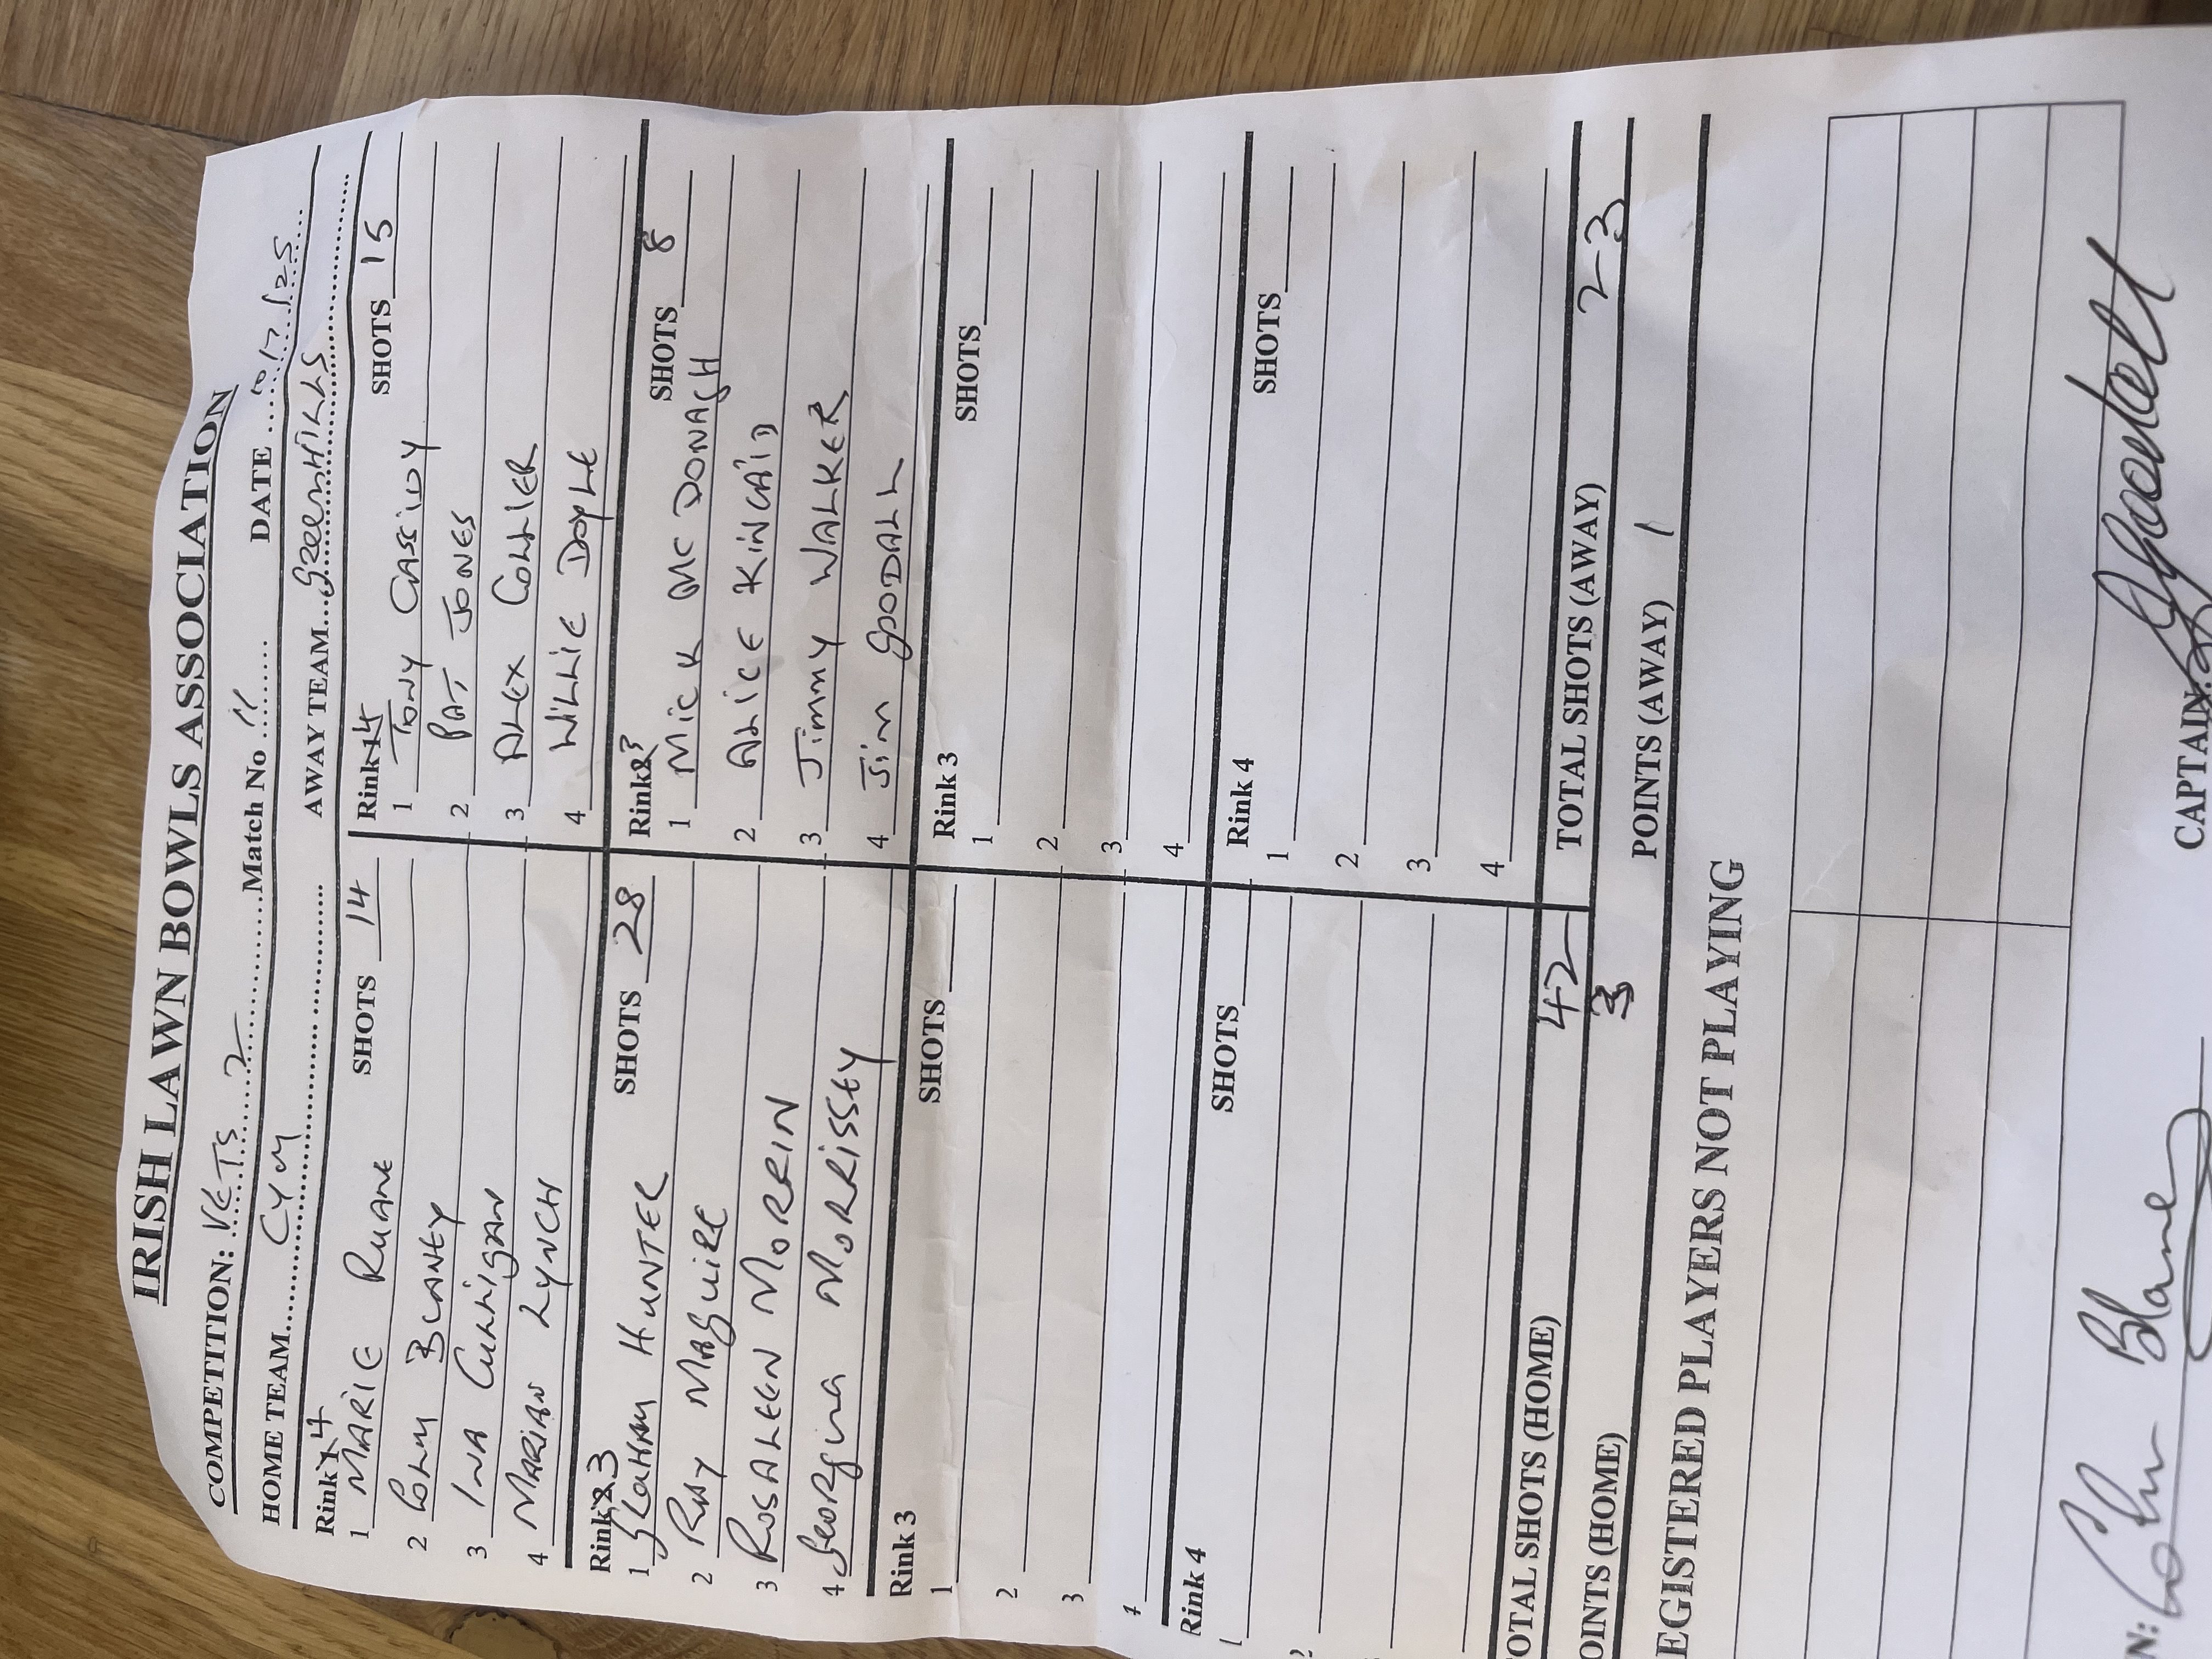 IRISH LAWN BOWLS ASSOCIATION
COMPETITION: VETS 2 Match No 11 DATE 10/7/25
HOME TEAM CYM AWAY TEAM GREENHILLS
Rink 4 SHOTS 14
1 MARIE RUANE
2 COLM BLANEY
3 INA CULLIGAN
4 MARIAN LYNCH
Rink 4 SHOTS 15
1 TONY CASSIDY
2 PAT JONES
3 ALEX COLLIER
4 WILLIE DOYLE
Rink 3 SHOTS 28
1 GRAHAM HUNTER
2 RAY MAGUIRE
3 ROSALEEN MORRIN
4 GEORGINA MORRISSEY
Rink 3 SHOTS 8
1 MICK MC DONAGH
2 ALICE KINCAID
3 JIMMY WALKER
4 JIM GOODALL
Rink 3 SHOTS
1
2
3
4
Rink 3 SHOTS
1
2
3
4
Rink 4 SHOTS
1
2
Rink 4 SHOTS
1
2
3
4
OTAL SHOTS (HOME) 42 TOTAL SHOTS (AWAY) 23
OINTS (HOME) 3 POINTS (AWAY) 1
EGISTERED PLAYERS NOT PLAYING
N: Colm Blaney CAPTAIN: J Goodall